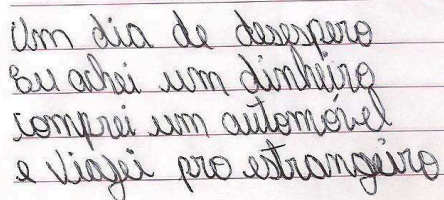 Um dia de desespero
Eu achei um dinheiro
comprei um automóvel
e viajei pro estrangeiro